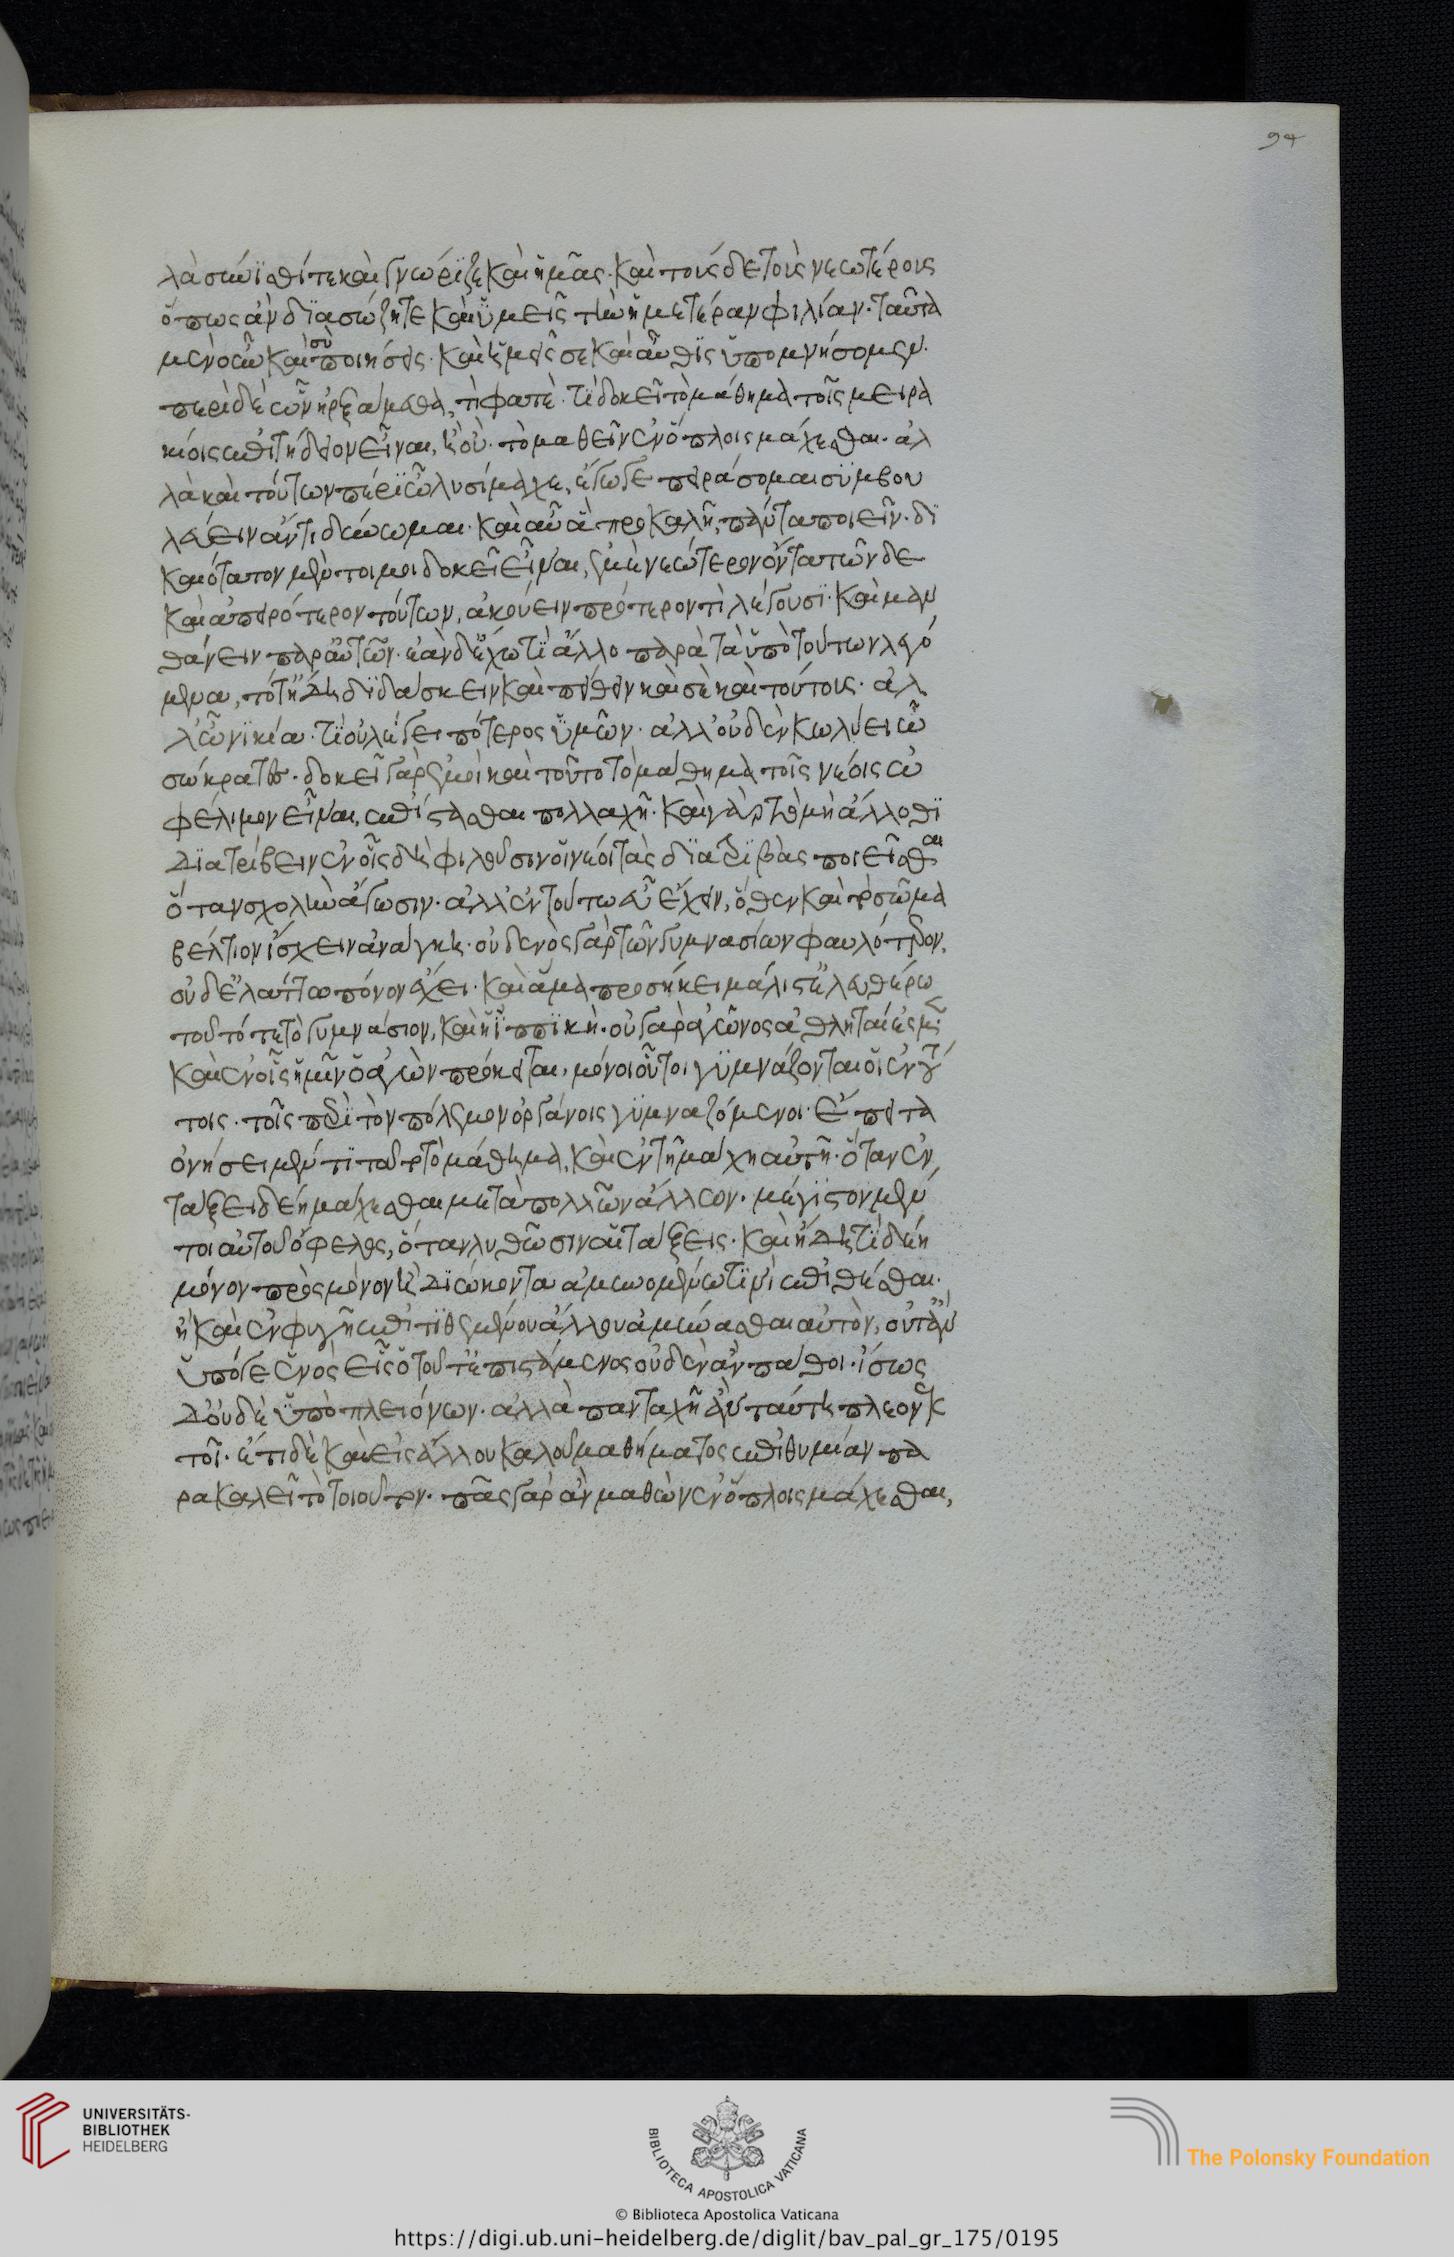 94
λὰ σύνϊσθί τε καὶ γνώριζε καὶ ἡμᾶς· καὶ τούςδε τοὺς νεωτέρους
ὅπως ἂν διασώζητε καὶ ὑμεῖς τὴν ἡμετέραν φιλίαν· ταῦτα
μὲν οὖν καὶ σὺ ποιήσεις· καὶ ἡμεῖς σε καὶ αὖθις ὑπομνήσομεν·
περὶ δὲ ὧν ἠρξάμεθα, τί φατὲ· τί δοκεῖ τὸ μάθημα τοῖς μειρα
κίοις ἐπιτήδειον εἶναι, ἢ οὔ· τὸ μαθεῖν ἐν ὅπλοις μάχεσθαι· ἀλ
λὰ καὶ τούτων πέρι ὦ λυσίμαχε, ἔγωγε πειράσομαι συμβου
λεύειν ἄν τι δύνωμαι· καὶ αὖ ἃ προκαλῆ, πάντα ποιεῖν· δι
καιότατον μέντοι μοι δοκεῖ εἶναι, ἐμὲ νεώτερον ὄντα τῶνδε
καὶ ἀπειρότερον τούτων, ἀκούειν πρότερον τί λέγουσι· καὶ μαν
θάνειν παρ' αὐτῶν· ἐὰν δ' ἔχω τι ἄλλο παρὰ τὰ ὑπὸ τούτων λεγό
μενα, τότ' ἤδη διδάσκειν καὶ πείθειν καὶ σὲ καὶ τούτους· ἀλ
λ' ὦ νικία· τί οὐ λέγει πότερος ὑμῶν· ἀλλ' οὐδὲν κωλύει ὦ
σώκρατες· δοκεῖ γὰρ ἐμοὶ καὶ τοῦτο τὸ μάθημα τοῖς νέοις ὠ
φέλιμον εἶναι, ἐπίστασθαι πολλαχῆ· καὶ γὰρ τὸ μὴ ἄλλοθι
διατρίβειν ἐν οἷς δὴ φιλοῦσιν οἱ νέοι τὰς διατριβὰς ποιεῖσθαι
ὅταν σχολὴν ἄγωσιν· ἀλλ' ἐν τούτω εὖ ἔχει, ὅθεν καὶ τὸ σῶμα
βέλτιον ἴσχειν ἀνάγκη· οὐδενὸς γὰρ τῶν γυμνασίων φαυλότερον,
οὐδ' ἐλάττω πόνον ἔχει· καὶ ἅμα προσήκει μάλιστ' ἐλευθέρω
τοῦτό τε τὸ γυμνάσιον, καὶ ἡ ἱππικὴ· οὗ γὰρ ἀγῶνος ἀθληταί ἐσμεν
καὶ ἐν οἷς ἡμῖν ὁ ἀγὼν πρόκειται, μόνοι οὗτοι γυμνάζονται οἱ ἐν τού
τοις· τοῖς περὶ τὸν πόλεμον ὀργάνοις γυμναζόμενοι· ἔπειτα
ὀνήσει μέν τι τοῦτο τὸ μάθημα, καὶ ἐν τῆ μάχη αὐτῆ· ὅταν ἐν
τάξει δέη μάχεσθαι μετὰ πολλῶν ἄλλων· μέγιστον μέν
τοι αὐτοῦ ὄφελος, ὅταν λυθῶσιν αἱ τάξεις· καὶ ἤδη τι δέη
μόνον πρὸς μόνον ἢ διώκοντα ἀμυνομένω τινὶ ἐπιθέσθαι·
ἢ καὶ ἐν φυγῆ ἐπιτιθεμένου ἄλλου ἀμύνασθαι αὐτὸν, οὔτ' ἂν
ὑπό γε ἑνὸς εἷς ὁ τοῦτ' ἐπιστάμενος οὐδὲν ἂν πάθοι· ἴσως
δ' οὐδὲ ὑπὸ πλειόνων· ἀλλὰ πανταχῆ ἂν ταύτη πλεονεκ
τοῖ· ἔτι δὲ καὶ εἰς ἄλλου καλοῦ μαθήματος ἐπιθυμίαν πα
ρακαλεῖ τὸ τοιοῦτον· πᾶς γὰρ ἂν μαθὼν ἐν ὅπλοις μάχεσθαι,
UNIVERSITÄTS-
BIBLIOTHEK
HEIDELBERG
BIBLIOTECA APOSTOLICA VATICANA
The Polonsky Foundation
© Biblioteca Apostolica Vaticana
https://digi.ub.uni-heidelberg.de/diglit/bav_pal_gr_175/0195